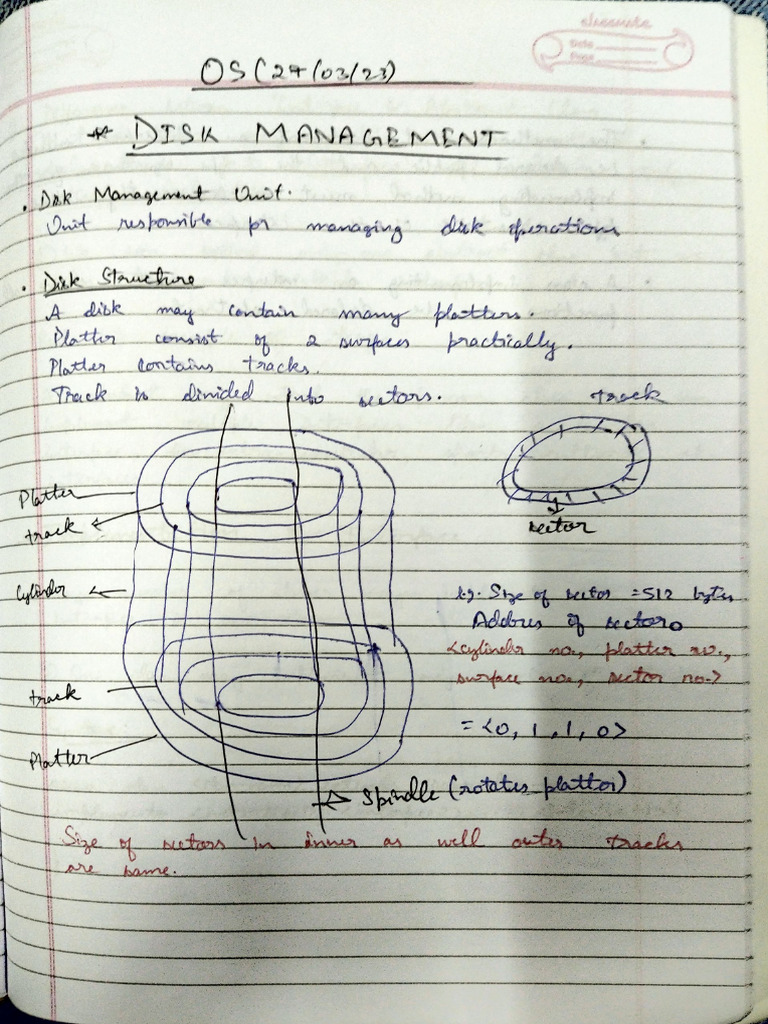 classmate
Date
Page
OS (27/03/23)
* DISK MANAGEMENT
• Disk Management Unit.
Unit responsible for managing disk operations
• Disk Structure
A disk may contain many platters.
Platter consist of 2 surfaces practically.
Platter contains tracks.
Track is divided into sectors.
track
Platter
track
sector
Cylinder
e.g. Size of sector = 512 bytes
Address of sector
<cylinder no., platter no.,
surface no., sector no.>
track
= <0, 1, 1, 0>
Platter
Spindle (rotates platter)
Size of sectors in inner as well outer tracks
are same.